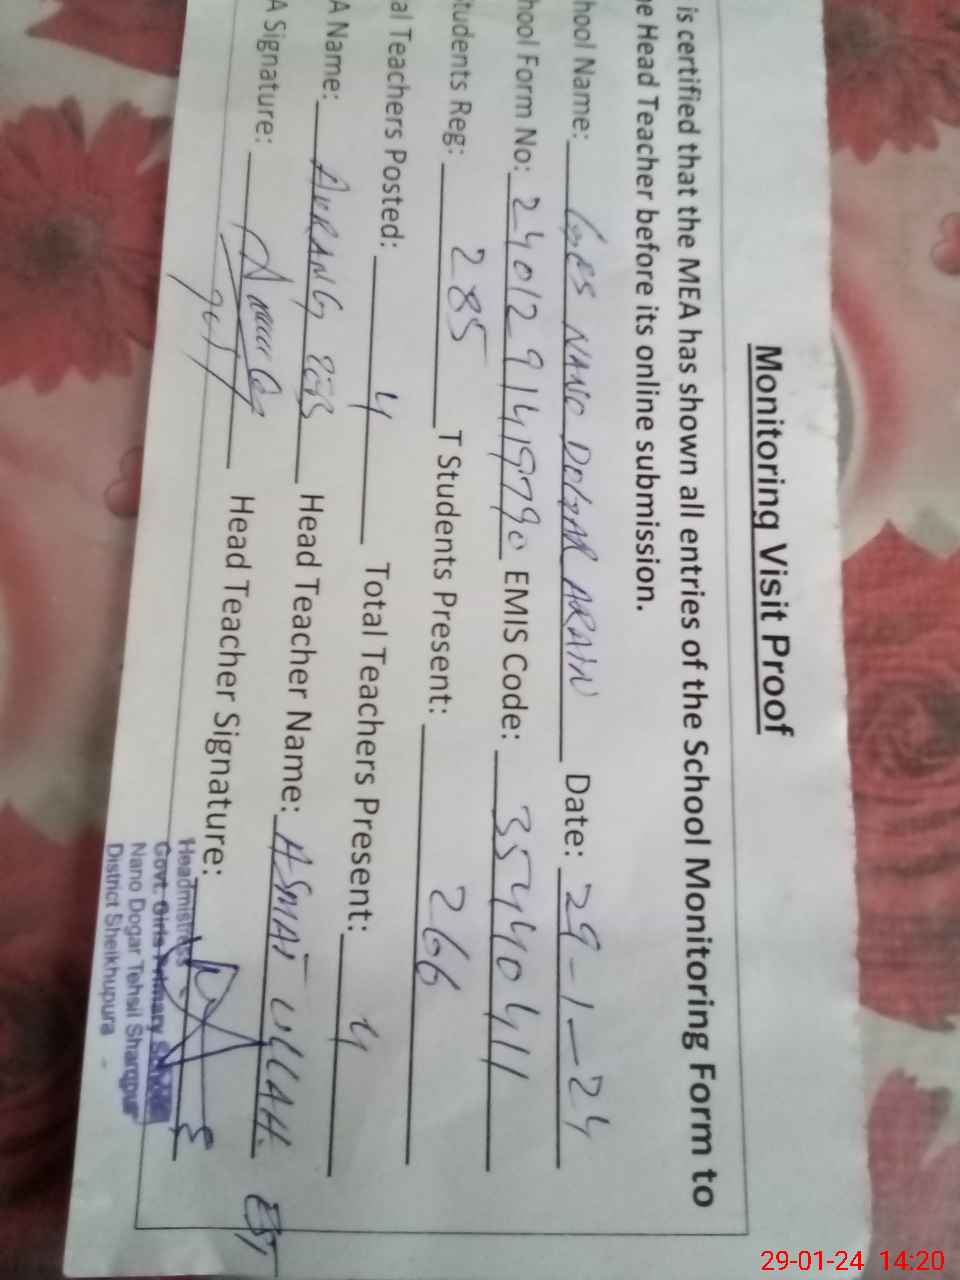 Monitoring Visit Proof
is certified that the MEA has shown all entries of the School Monitoring Form to
e Head Teacher before its online submission.
hool Name: GPS NANO DOGAR ARAIN Date: 29-1-24
hool Form No: 240129141979 EMIS Code: 35440411
tudents Reg: 285 T Students Present: 266
al Teachers Posted: 4 Total Teachers Present: 4
A Name: AURANG ZEB Head Teacher Name: ASMAT ULLAH. EST
A Signature: Head Teacher Signature:
Headmistress
Govt. Girls Primary School
Nano Dogar Tehsil Sharqpur
District Sheikhupura
29-01-24 14:20